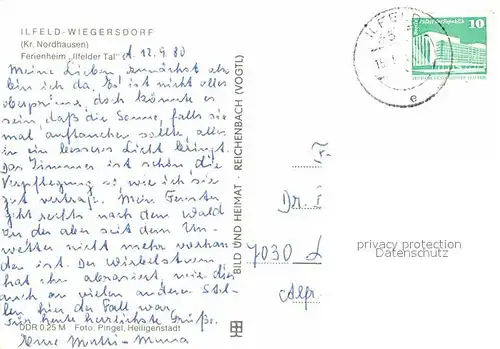 ILFELD-WIEGERSDORF
(Kr. Nordhausen)
Ferienheim „Ilfelder Tal"
d. 12.9.80
Meine Lieben zunächst also
bin ich da. Es ist nicht alles
doch könnte es
sein, daß die Sonne, falls sie
mal auftauchen sollte, alles
in ein besseres Licht bringt.
Das Zimmer ist schön die
Verpflegung so, wie ich sie
gut vertrage. Mein Fenster
geht rechts nach dem Wald
an der aber seit dem Un-
wetter nicht mehr vorhan
den ist. Der Wirbelsturm
hat ihn abrasiert, wie dies
auch an vielen anderen Stel-
len hier der Fall war.
Für heute herzlichste Grüße.
DDR 0,25 M Foto: Pingel, Heiligenstadt
Eure Mutti-
BILD UND HEIMAT · REICHENBACH (VOGTL)
ILFELD
e
10
Dr.
7030 L
privacy protection
Datenschutz